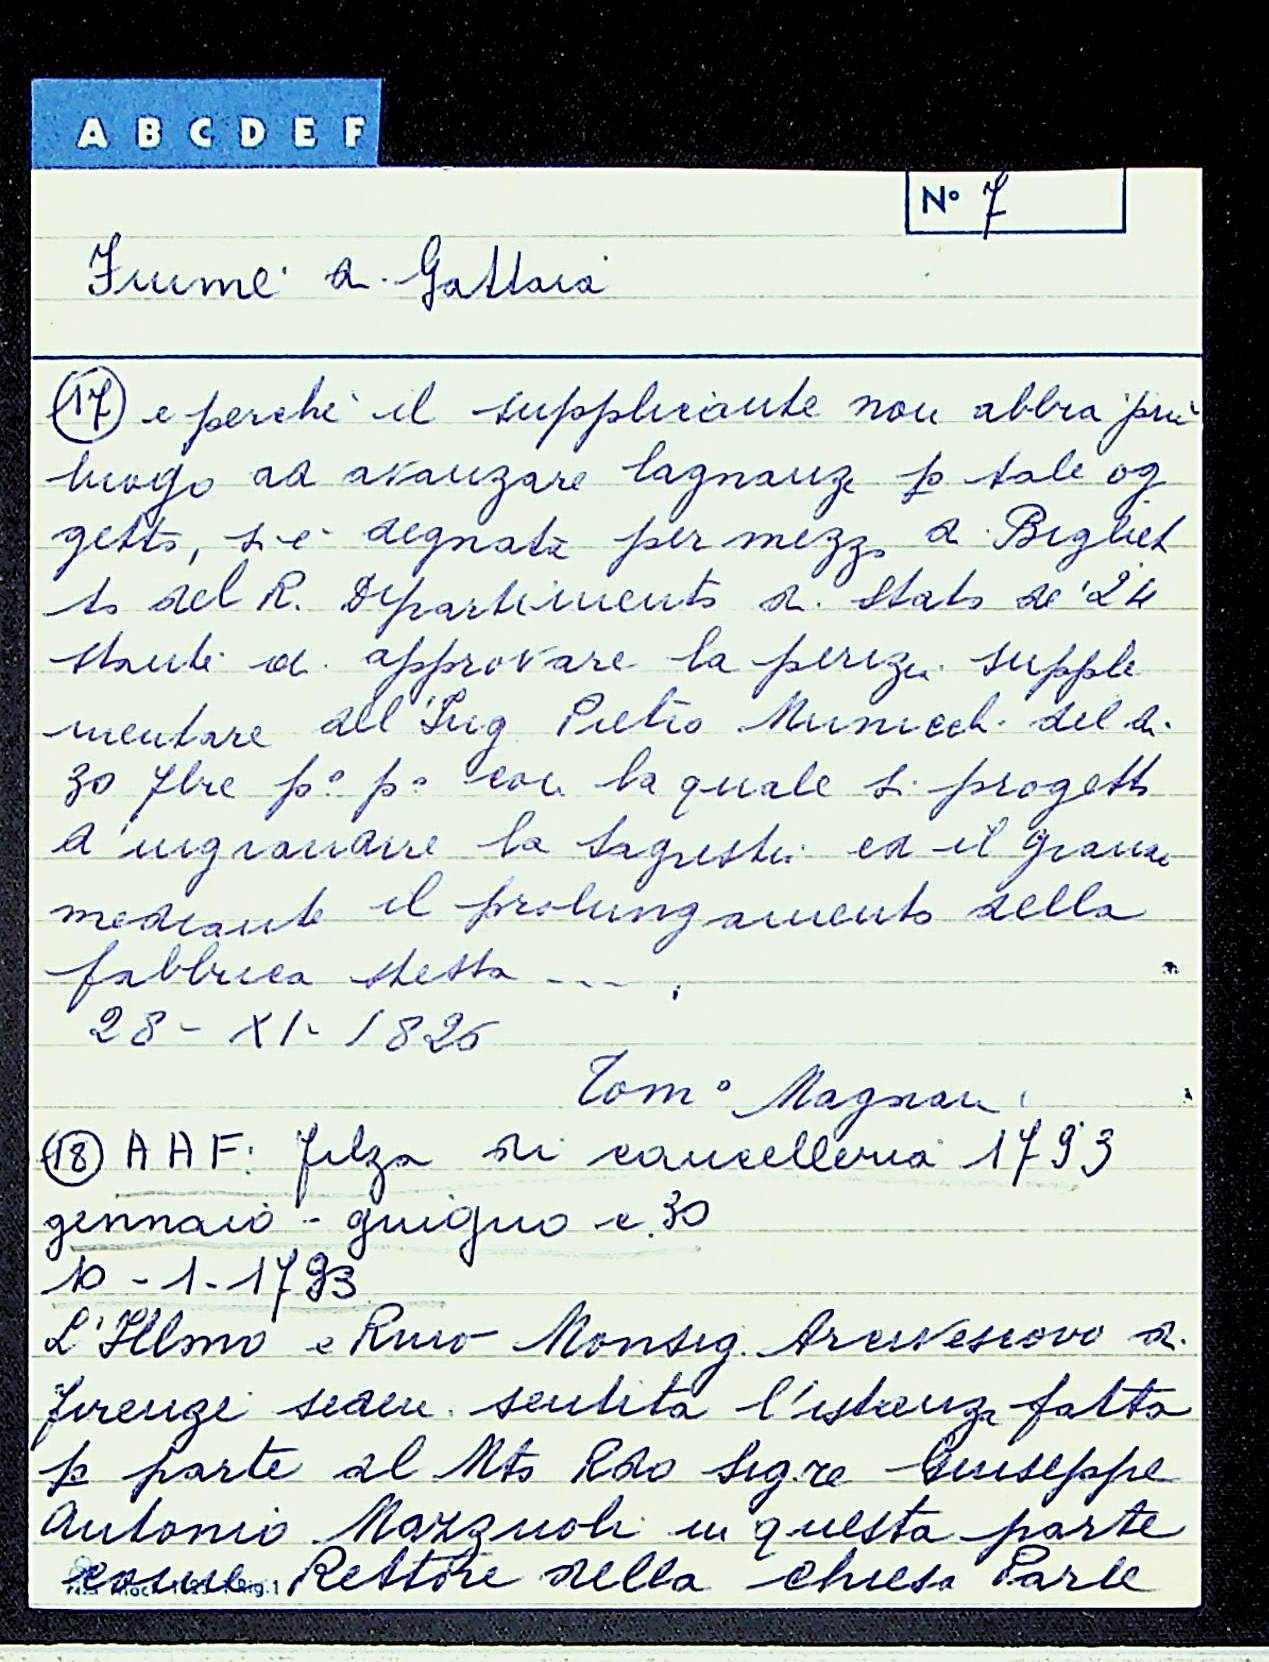 A B C D E F
N° 7
Fiume di Gattaia
(17) e perché il suppliciante non abbia più
luogo ad avanzare lagnanze p tale og
getto, si è degnata per mezzo di Bigliet
to del R. Dipartimento di Stato de' 24
stante di approvare la perizia supple
mentare dell'Ing Pietro Municchi del di
30 7bre p° p° con la quale si progettò
d'ingrandire la sagrestia ed il
mediante il prolungamento della
fabbrica stessa ....
28 - XI - 1826
Tom° Magnani
(18) A A F: Filza di cancelleria 1793
gennaio - giugno c. 30
10 - 1 - 1793
L'Illmo e Rmo Monsig. Arcivescovo di
firenze sedere sentita l'istanza fatta
p parte dl Mto Rdo Sigre Giuseppe
Antonio Mazzuoli in questa parte
come Rettore della chiesa Parle